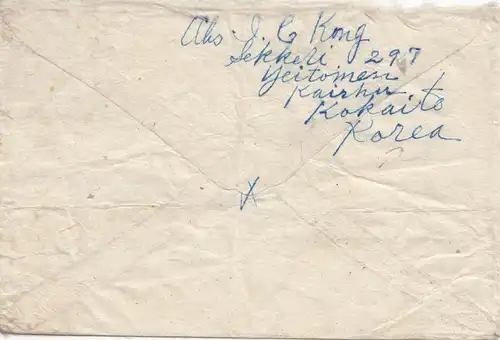 Abs. I. C Kong
Sekkeri 297
Yeitomen
Kairhu
Kokaito
Korea
X